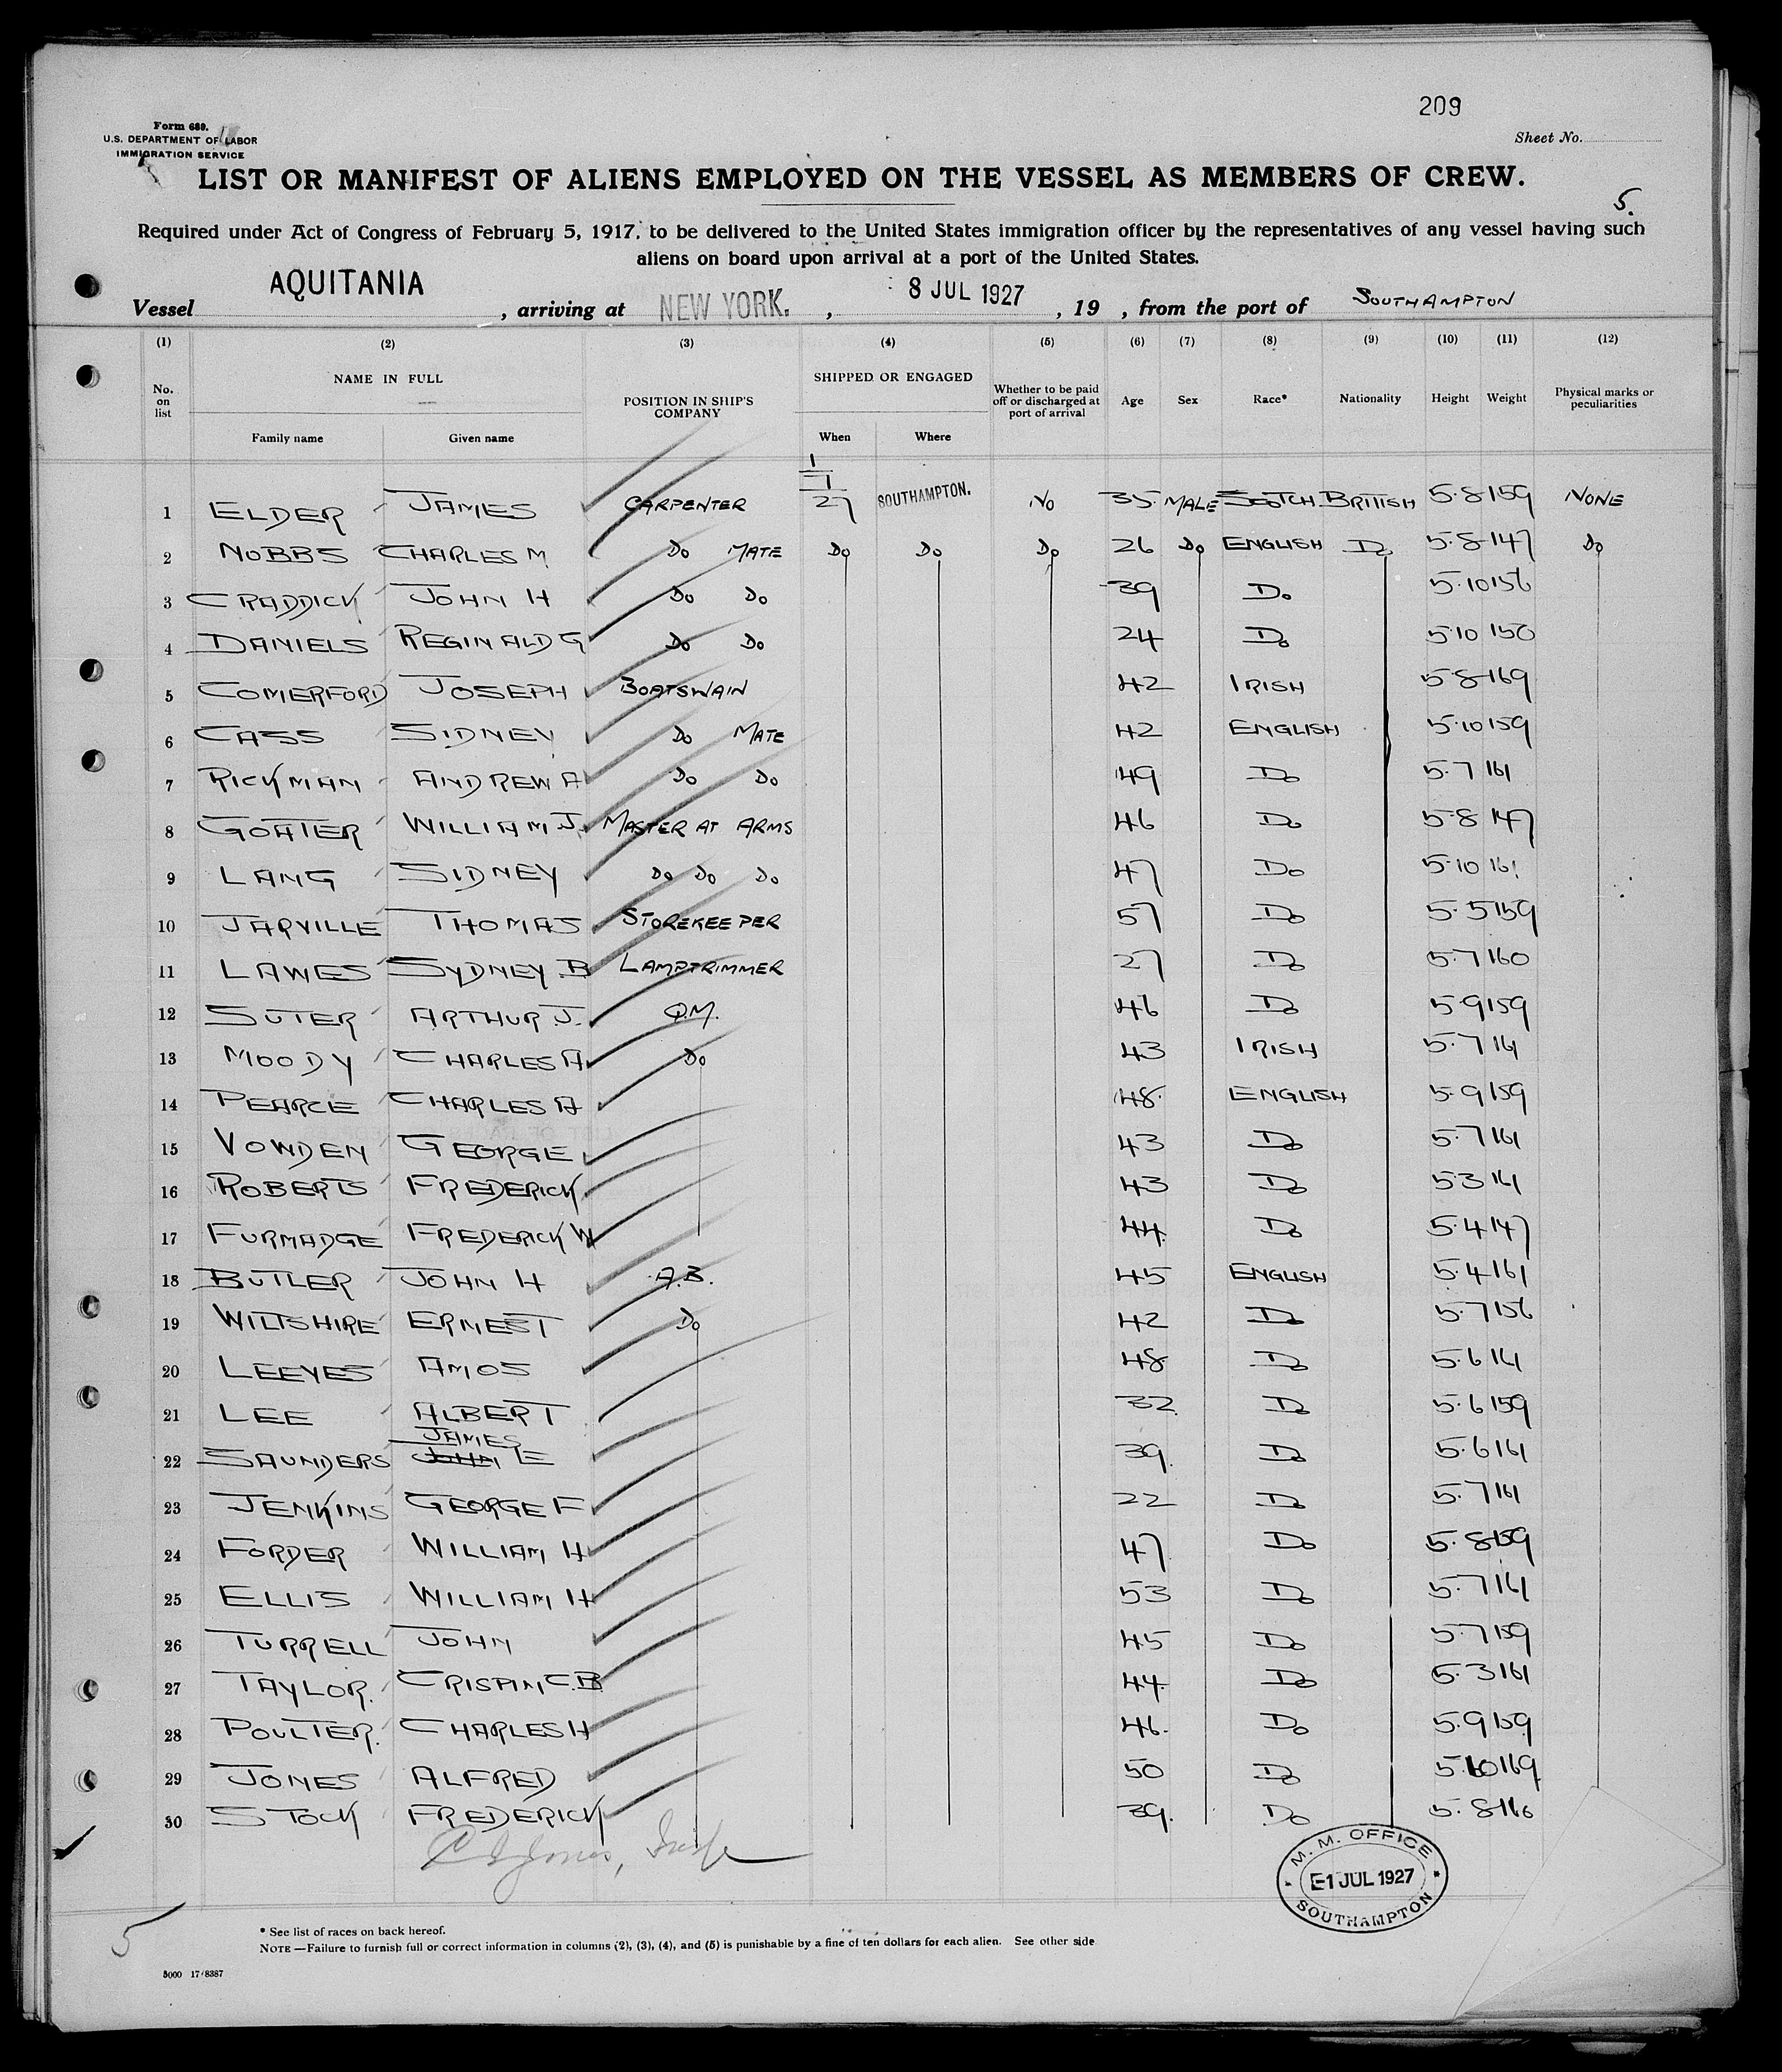 209
Form 689.
U.S. DEPARTMENT OF LABOR
IMMIGRATION SERVICE
Sheet No.
LIST OR MANIFEST OF ALIENS EMPLOYED ON THE VESSEL AS MEMBERS OF CREW.
5.
Required under Act of Congress of February 5, 1917, to be delivered to the United States immigration officer by the representatives of any vessel having such
aliens on board upon arrival at a port of the United States.
Vessel AQUITANIA, arriving at NEW YORK., 8 JUL 1927, 19 , from the port of SOUTHAMPTON
(1) (2) (3) (4) (5) (6) (7) (8) (9) (10) (11) (12)
No. on list NAME IN FULL POSITION IN SHIP'S COMPANY SHIPPED OR ENGAGED Whether to be paid off or discharged at port of arrival Age Sex Race* Nationality Height Weight Physical marks or peculiarities
Family name Given name When Where
1 ELDER JAMES CARPENTER 1/7/27 SOUTHAMPTON. NO 35 MALE SCOTCH BRITISH 5.8 159 NONE
2 NOBBS CHARLES M Do MATE Do Do Do 26 Do ENGLISH Do 5.8 147 Do
3 CRADDICK JOHN H Do Do 39 Do 5.10 156
4 DANIELS REGINALD G Do Do 24 Do 5.10 150
5 COMERFORD JOSEPH BOATSWAIN 42 IRISH 5.8 169
6 CASS SIDNEY Do MATE 42 ENGLISH 5.10 159
7 RICKMAN ANDREW A Do Do 49 Do 5.7 161
8 GOATER WILLIAM J. MASTER AT ARMS 46 Do 5.8 147
9 LANG SIDNEY Do Do Do 47 Do 5.10 161
10 JARVILLE THOMAS STOREKEEPER 57 Do 5.5 159
11 LAWES SYDNEY B LAMPTRIMMER 27 Do 5.7 160
12 SUTER ARTHUR J. Q.M. 46 Do 5.9 159
13 MOODY CHARLES A Do 43 IRISH 5.7 161
14 PEARCE CHARLES A 48 ENGLISH 5.9 159
15 VOWDEN GEORGE 43 Do 5.7 161
16 ROBERTS FREDERICK 43 Do 5.3 161
17 FURMADGE FREDERICK W 44 Do 5.4 147
18 BUTLER JOHN H A.B. 45 ENGLISH 5.4 161
19 WILTSHIRE ERNEST Do 42 Do 5.7 156
20 LEEVES AMOS 48 Do 5.6 161
21 LEE ALBERT 32 Do 5.6 159
22 SAUNDERS JOHN JAMES E 39. Do 5.6 161
23 JENKINS GEORGE F 22 Do 5.7 161
24 FORDER WILLIAM H 47 Do 5.8 159
25 ELLIS WILLIAM H 53 Do 5.7 161
26 TURRELL JOHN 45 Do 5.7 159
27 TAYLOR. CRISPIN C.B 44. Do 5.3 161
28 POULTER. CHARLES H 46. Do 5.9 159
29 JONES ALFRED 50 Do 5.10 169
30 STOCK FREDERICK 39. Do 5.8 166
Jones,
M. M. OFFICE
1 JUL 1927
SOUTHAMPTON
5
* See list of races on back hereof.
NOTE—Failure to furnish full or correct information in columns (2), (3), (4), and (5) is punishable by a fine of ten dollars for each alien. See other side
5000 17/8387